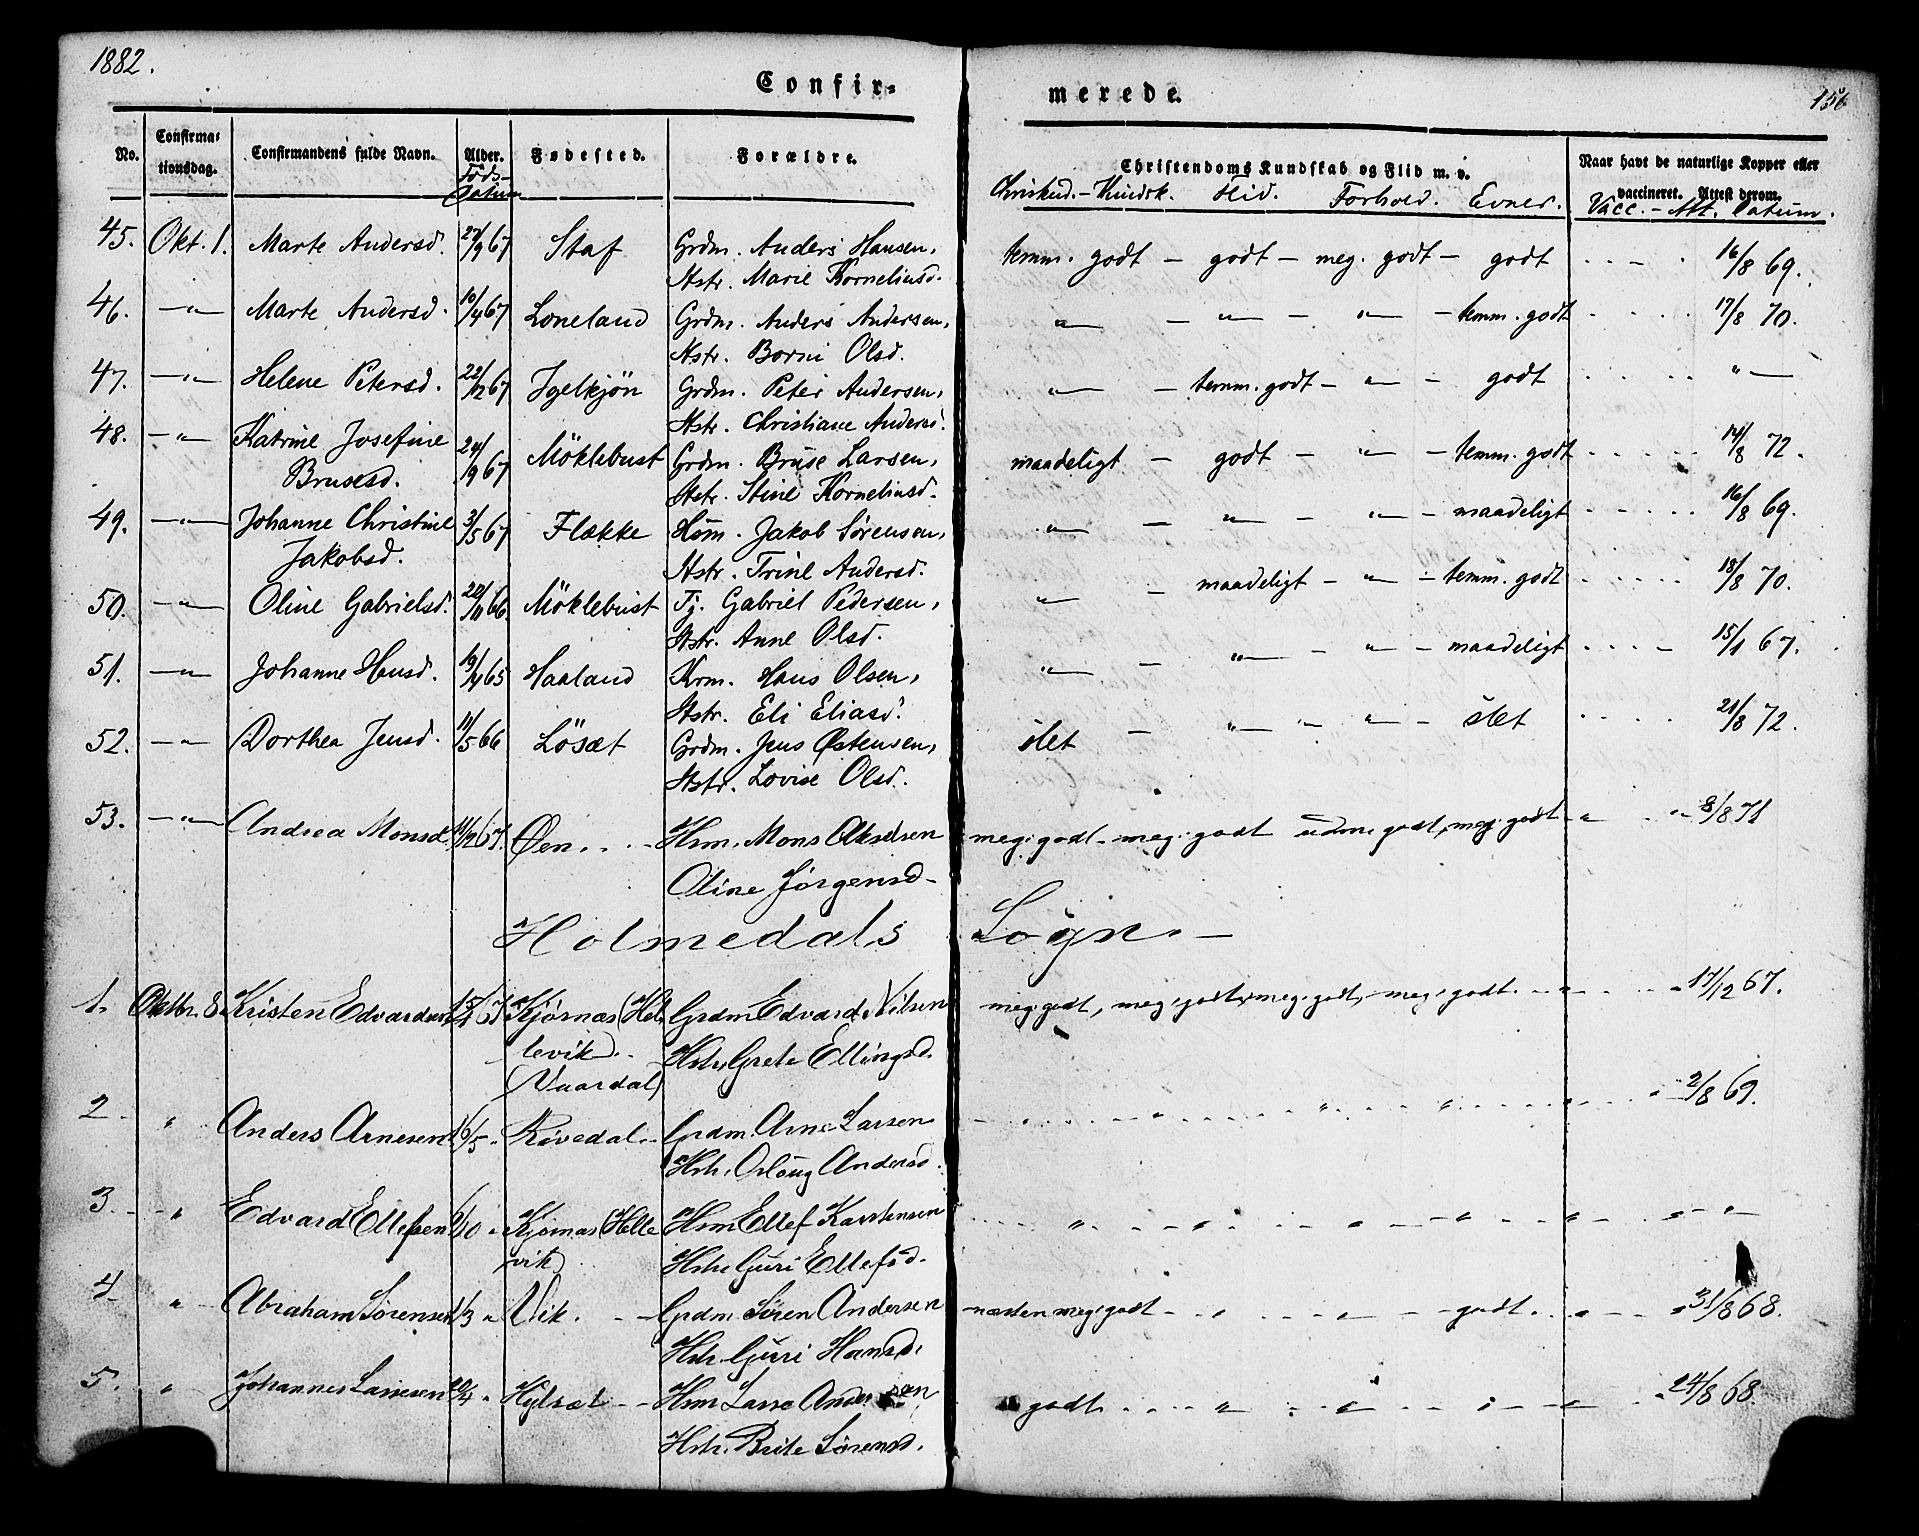 1882.
Confir-
merede.
156
No. Confirmationsdag. Confirmandens fulde Navn. Alder. Føds-datum Fødested. Forældre. Christendoms Kundskab og Flid m. v. Naar havt de naturlige Kopper eller vaccineret. Attest derom.
Kundsk. Flid. Forhold. Evner. Vacc. - Att. Datum.
45. Okt. 1. Marte Andersd. 27/9 67 Staf Grdm. Anders Hansen, temm. godt - godt - meg. godt - godt 16/8 69.
Hstr. Marie Korneliusd.
46. -"- Marte Andersd. 10/4 67 Loneland Grdm. Anders Andersen, -"- - -"- - -"- - temm. godt 17/8 70.
Hstr. Borni Olsd.
47. -"- Helene Petersd. 22/12 67 Igelkjön Grdm. Peter Andersen, -"- - temm. godt - -"- - godt "-
Hstr. Christiane Andersd.
48. -"- Katrine Josefine Brusesd. 67 Möklebust Grdm. Bruse Larsen, maadeligt - godt - -"- - temm. godt 14/8 72.
Hstr. Stine Korneliusd.
49. -"- Johanne Christine Jakobsd. 3/5 67 Flække Hsm. Jakob Sørensen, -"- - -"- - -"- - maadeligt 16/8 69.
Hstr. Trine Andersd.
50. -"- Oline Gabrielsd. 20/11 66. Möklebust Tj. Gabriel Pedersen, -"- - maadeligt - -"- - temm. godt 18/8 70.
Hstr. Anne Olsd.
51. -"- Johanne Hansd. 19/4 65 Haaland Krm. Hans Olsen, -"- - -"- - -"- - maadeligt 15/1 67.
Hstr. Eli Eliasd.
52. -"- Dorthea Jensd. 11/5 66 Lösæt Grdm. Jens Østensen, slet - -"- - -"- - slet 21/8 72.
Hstr. Lovise Olsd.
53. -"- Andrea Monsd. 67. Øen Hsm. Mons Akselsen meg. godt - meg. godt udm. godt, meg. godt 8/8 71
Oline Jørgensd-
Holmedals Sogn. -
1. Oktbr. 8. Kristen Edvardsen 67 Kjørnæs (Hel- Grdm Edvard Nilsen meg. godt, meg. godt, meg. godt, - meg. godt. 17/12 67.
levik) Hstr. Grete Ellingsd.
(Vaardal)
2 " Anders Arnesen 16/5 - Røvedal - Grdm. Arne Larsen 2/8 69.
Hstr. Orloug Andersd.
3. " Edvard Ellefsen /10 - Kjørnæs (Helle Hsm Ellef Karstensen
vik) Hstr. Guri Ellefsd.
4 " Abraham Sørensen /3 " Vik. - Grdm. Søren Andersen næsten meg. godt - " " - godt. 31/8 68.
Hstr. Guri Hansd.
5. " Johannes Lassesen /4 " Hylsæt - Hsm Lasse Andersen godt. 24/8 68.
Hstr. Brite Sørensd.